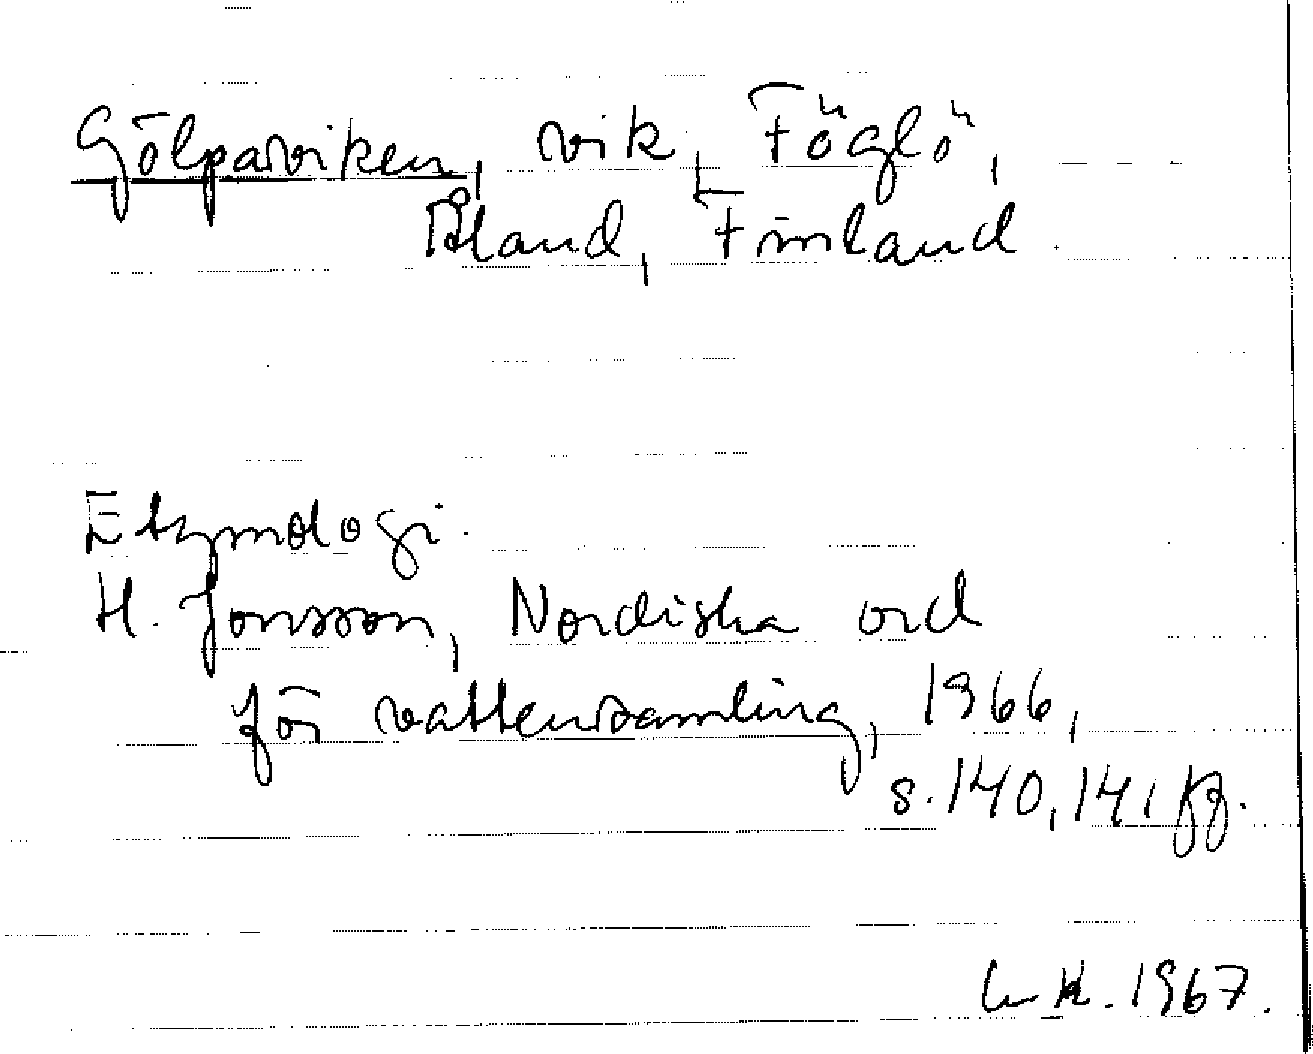 Gölparviken, vik, Föglö,
Åland, Finland.
Etymologi.
H. Jonsson, Nordiska ord
för vattensamling, 1966,
s. 140, 141 ff.
K. 1967.